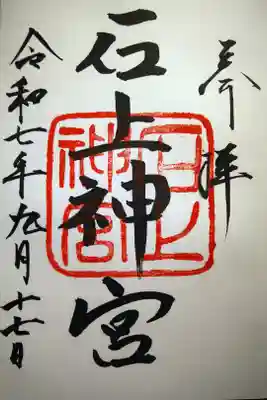 奉拝
石上神宮
石上神宮
令和七年九月十七日